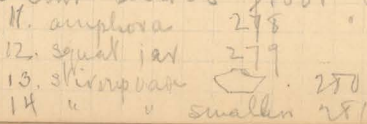 11. amphora 278
12. squat jar 279
13. stirrupvase 280
14 " " smaller 281